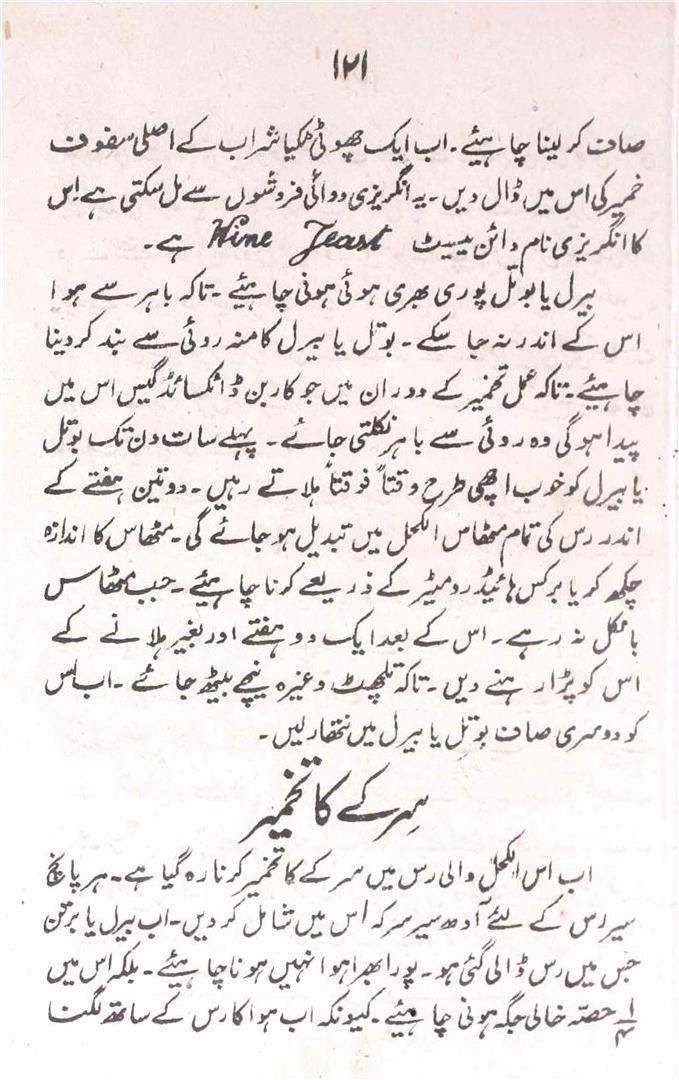 ۱۲۱
صاف کر لینا چاہیئے۔ اب ایک چھوٹی ٹکیا شراب کے اصلی سفوف
خمیر کی اس میں ڈال دیں۔ یہ انگریزی دوائی فروشوں سے مل سکتی ہے اِس
کا انگریزی نام وائن ییسٹ Wine Yeast ہے۔
بیرل یا بوتل پوری بھری ہوئی ہونی چاہیئے۔ تاکہ باہر سے ہوا
اس کے اندر نہ جا سکے۔ بوتل یا بیرل کا منہ روئی سے بند کر دینا
چاہیئے۔ تاکہ عمل تخمیر کے دوران میں جو کاربن ڈائکسائڈ گیس اس میں
پیدا ہوگی وہ روئی سے باہر نکلتی جائے۔ پہلے سات دن تک بوتل
یا بیرل کو خوب اچھی طرح وقتاً فوقتاً ہلاتے رہیں۔ دو تین ہفتے کے
اندر رس کی تمام مٹھاس الکحل میں تبدیل ہو جائے گی۔ مٹھاس کا اندازہ
چکھ کر یا برکس ہائیڈرومیٹر کے ذریعے کرنا چاہیئے۔ جب مٹھاس
بالکل نہ رہے۔ اس کے بعد ایک دو ہفتے اور بغیر ہلانے کے
اس کو پڑا رہنے دیں۔ تاکہ تلچھٹ وغیرہ نیچے بیٹھ جائے۔ اب اس
کو دوسری صاف بوتل یا بیرل میں نتھار لیں۔
سرکے کا تخمیر
اب اس الکحل والی رس میں سرکے کا تخمیر کرنا رہ گیا ہے۔ ہر پانچ
سیر رس کے لئے آدھ سیر سرکہ اس میں شامل کر دیں۔ اب بیرل یا برتن
جس میں رس ڈالی گئی ہو۔ پورا بھرا ہوا نہیں ہونا چاہیئے۔ بلکہ اس میں
۱/۴ حصّہ خالی جگہ ہونی چاہیئے۔ کیونکہ اب ہوا کا رس کے ساتھ لگنا